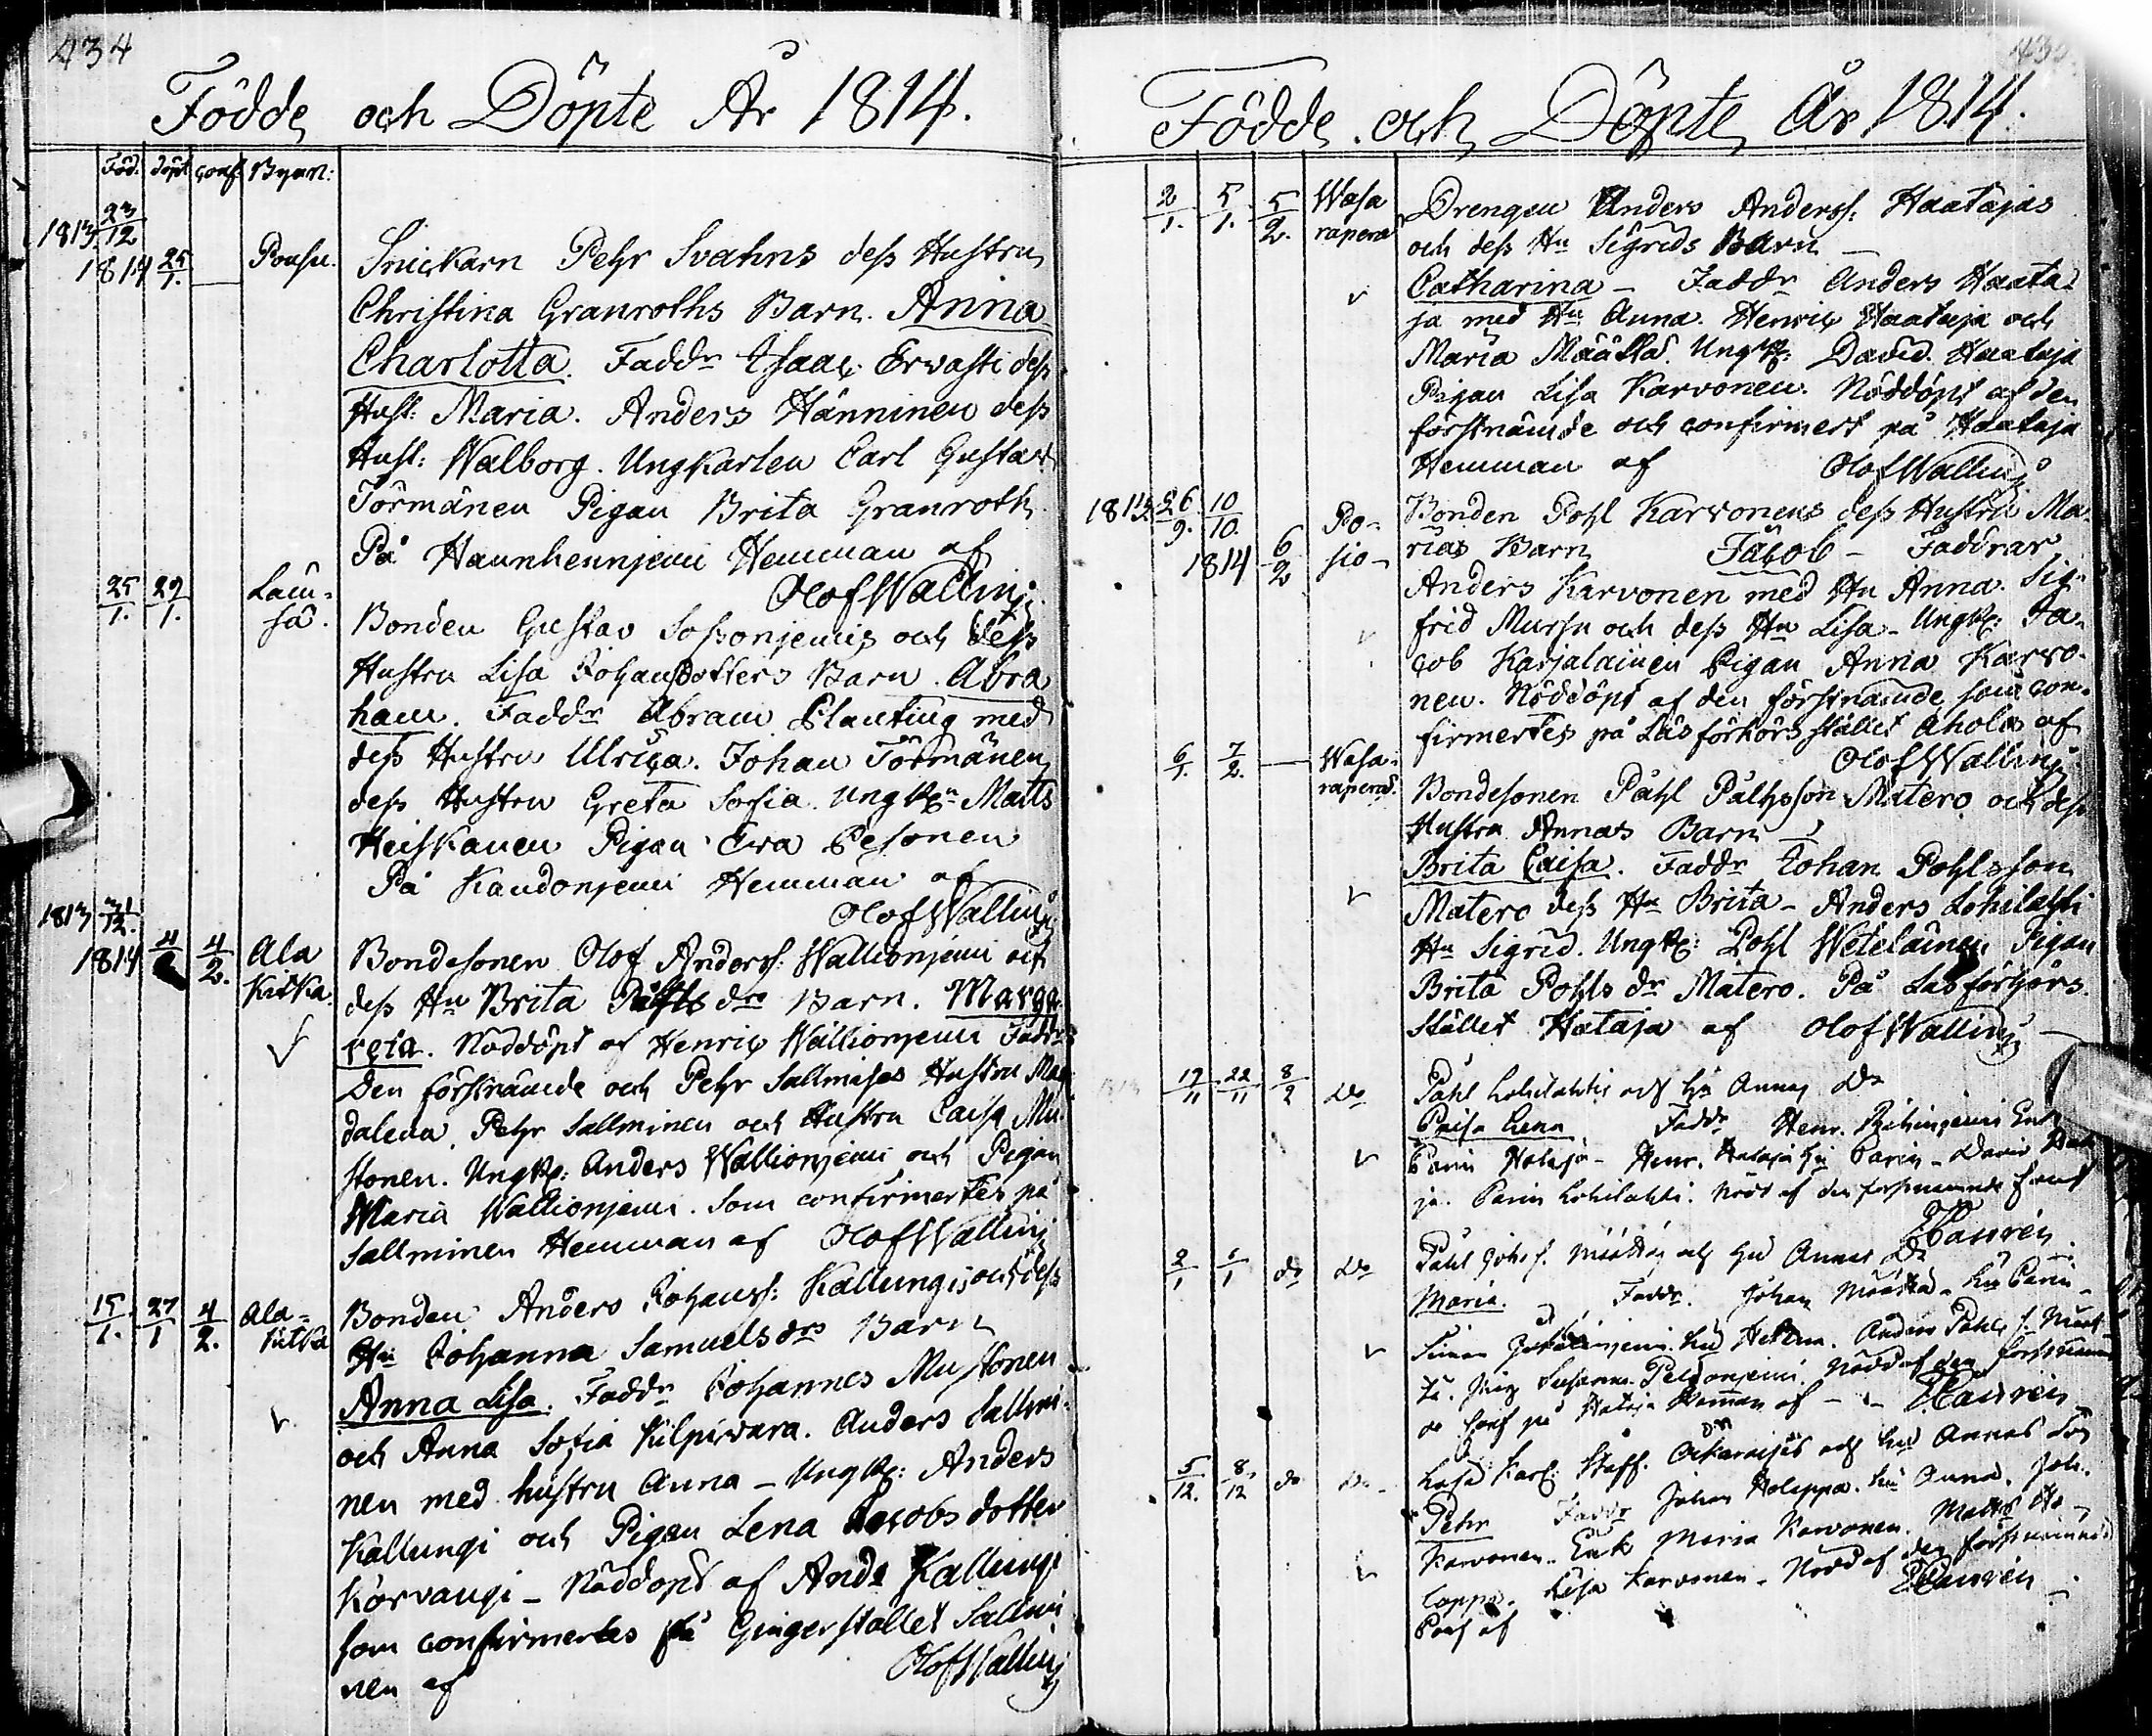 434
Födde och Döpte År 1814.
Föd. döpt conf. Byarn:
1813 23/12
1814 25/1. — Posu. Snickarn Pehr Svahns dess Hustru
Christina Granroths Barn. Anna
Charlotta. Faddr Isaac Ervasti dess
Hust: Maria. Anders Hänninen dess
Hust: Walborg. Ungkarlen Carl Gustav
Törmänen Pigan Brita Granroth
På Hemman af
Olof Walling
25/1. 29/1. Bonden Gustav och dess
Hustru Lisa Johansdotters Barn. Abra
ham. Faddr Abram Planting med
dess Hustru Ulrica. Johan Törmänen
dess Hustru Greta Sofia. Matts
Heiskanen Pigan Eva Pesonen
På Hemman af
Olof Walling
1813 31/12.
1814 4/2. Ala
Kitka. Bondesonen Olof Anderss: Wallionjemi och
dess Hu Brita drs Barn. Marga
reta. Nöddöpt af Henric Wallionjemi Faddr
Den förstnämde och Pehr Sallmises Hustru Mag
dalena. Pehr Sallminen och Hustru Caisa Mu
stonen. Ungk: Anders Wallionjemi och Pigan
Maria Wallionjemi. Som confirmertes på
Sallminen Hemman af Olof Walling
15/1. 27/1 4/2. Ala-
kitka Bonden Anders Johanss: Kallungis och dess
Hu Johanna Samuels drs Barn
Anna Lisa. Faddr Johannes Mustonen
och Anna Sofia Kilpivara. Anders Sallmi-
nen med hustru Anna - Ungk: Anders
Kallungi och Pigan Lena Jacobs dotter
Korvangi - Nöddöpt af Ands Kallungi
som confirmertes på Gingerstället Sallmi
nen af Olof Walling
Födde och Döpte År 1814.
2/1. 5/1. 5/2. Wasa
rapera Drengen Anders Anderss: Haatajas
och dess Hu Sigrids Barn —
Catharina - Faddr Anders Haata-
ja med Hu Anna. Henric Haataja och
Maria Määttä. Ungk: David Haataja
Pigan Lisa Karvonen. Nöddöpt af den
förstnämde och confirmert på Haataja
Hemman af Olof Walling
1813 26/9. 10/10. Po-
1814 6/2 sio- Bonden Pohl Karvonens dess Hustru Ma-
rias Barn Jacob - Faddrar
Anders Karvonen med Hu Anna. Sig-
frid Mursu och dess Hu Lisa - Ungk: Ja-
cob Karjalainen Pigan Anna Karvo-
nen. Nöddöpt af den förstnämde som con-
firmertes på Läsförhörs stället Ahola af
Olof Walling
6/1. 7/2. — Wasa-
rapera. Bondesonen Påhl Påhlsson Matero och dess
Hustru Annas Barn
Brita Caisa. Faddr Johan Pohlsson
Matero dess Hu Brita - Anders Lohilahti
Hu Sigrid. Ungk: Pohl Wetelainen Pigan
Brita Pohls dr Matero. På Läsförhörs
stället Hataja af Olof Walling
17/11 22/11 8/2 do Påhl Lohilahtis och Hu Annas dr
Caisa Lena Faddr Henr.
Carin Hataja - Henr. Hataja Hu Carin - David Hata
ja. Carin Lohilahti. Nödd af den förstnämde
2/1 do do Påhl Johs s. och Hu Annas dr
Maria. Faddr. Johan Määttä. Hu Carin -
Hu Helena. Anders Påhls s. Määt-
tä. Pelsonjemi. Nödd af den förstnämde
o conf på Hataja Hemman af
5/12. 8/12 do do. Karl: Staff. och Hu Annas Son
Pehr Faddr Johan Holappa. Hu Anna. Joh.
Karvonen. Erik Maria Karvonen. Matts Ho-
lappa. Lisa Karvonen. Nödd af den förstnämnde
Conf af